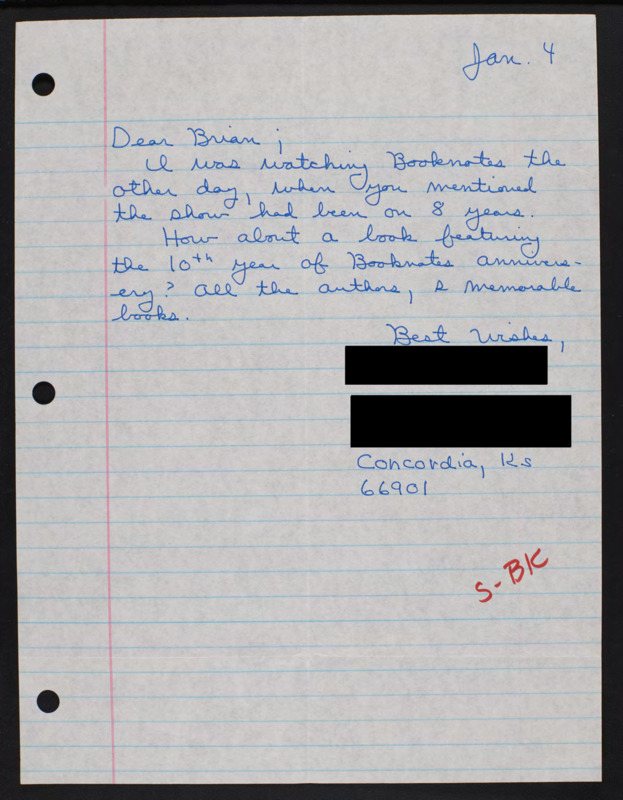 Jan. 4
Dear Brian;
I was watching Booknotes the
other day, when you mentioned
the show had been on 8 years.
How about a book featuring
the 10th year of Booknotes annivers-
ery? All the authors, & memorable
books.
Best Wishes,
Concordia, Ks
66901
S-BK